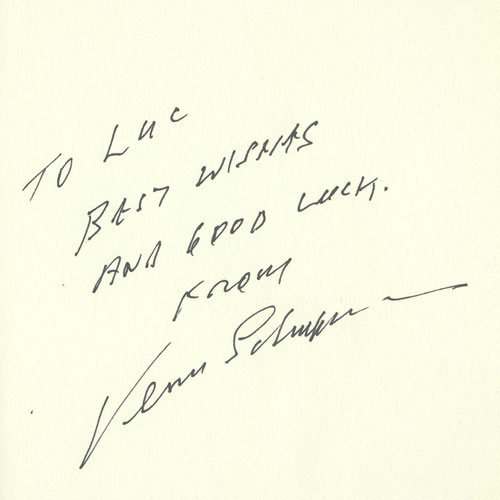 TO LUC
BEST WISHES
AND GOOD LUCK.
FROM
Vern